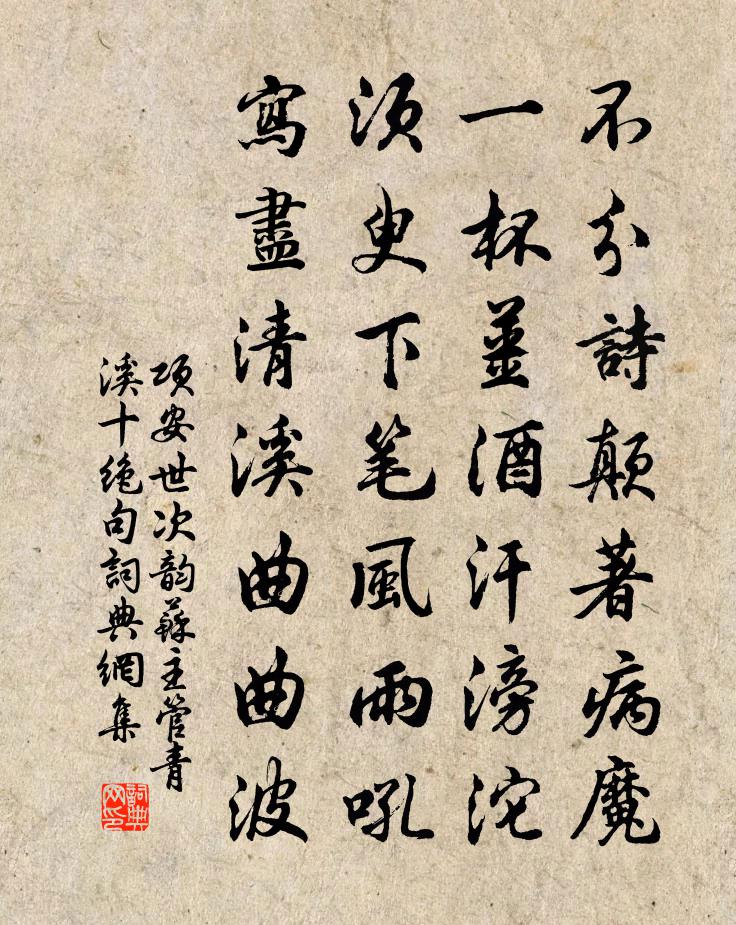 不分詩顛著病魔
一杯薑酒汗滂沱
須臾下笔風雨吼
寫盡清溪曲曲波
項安世次韵蘇主管青
溪十絶句詞典網集
詞典
网印